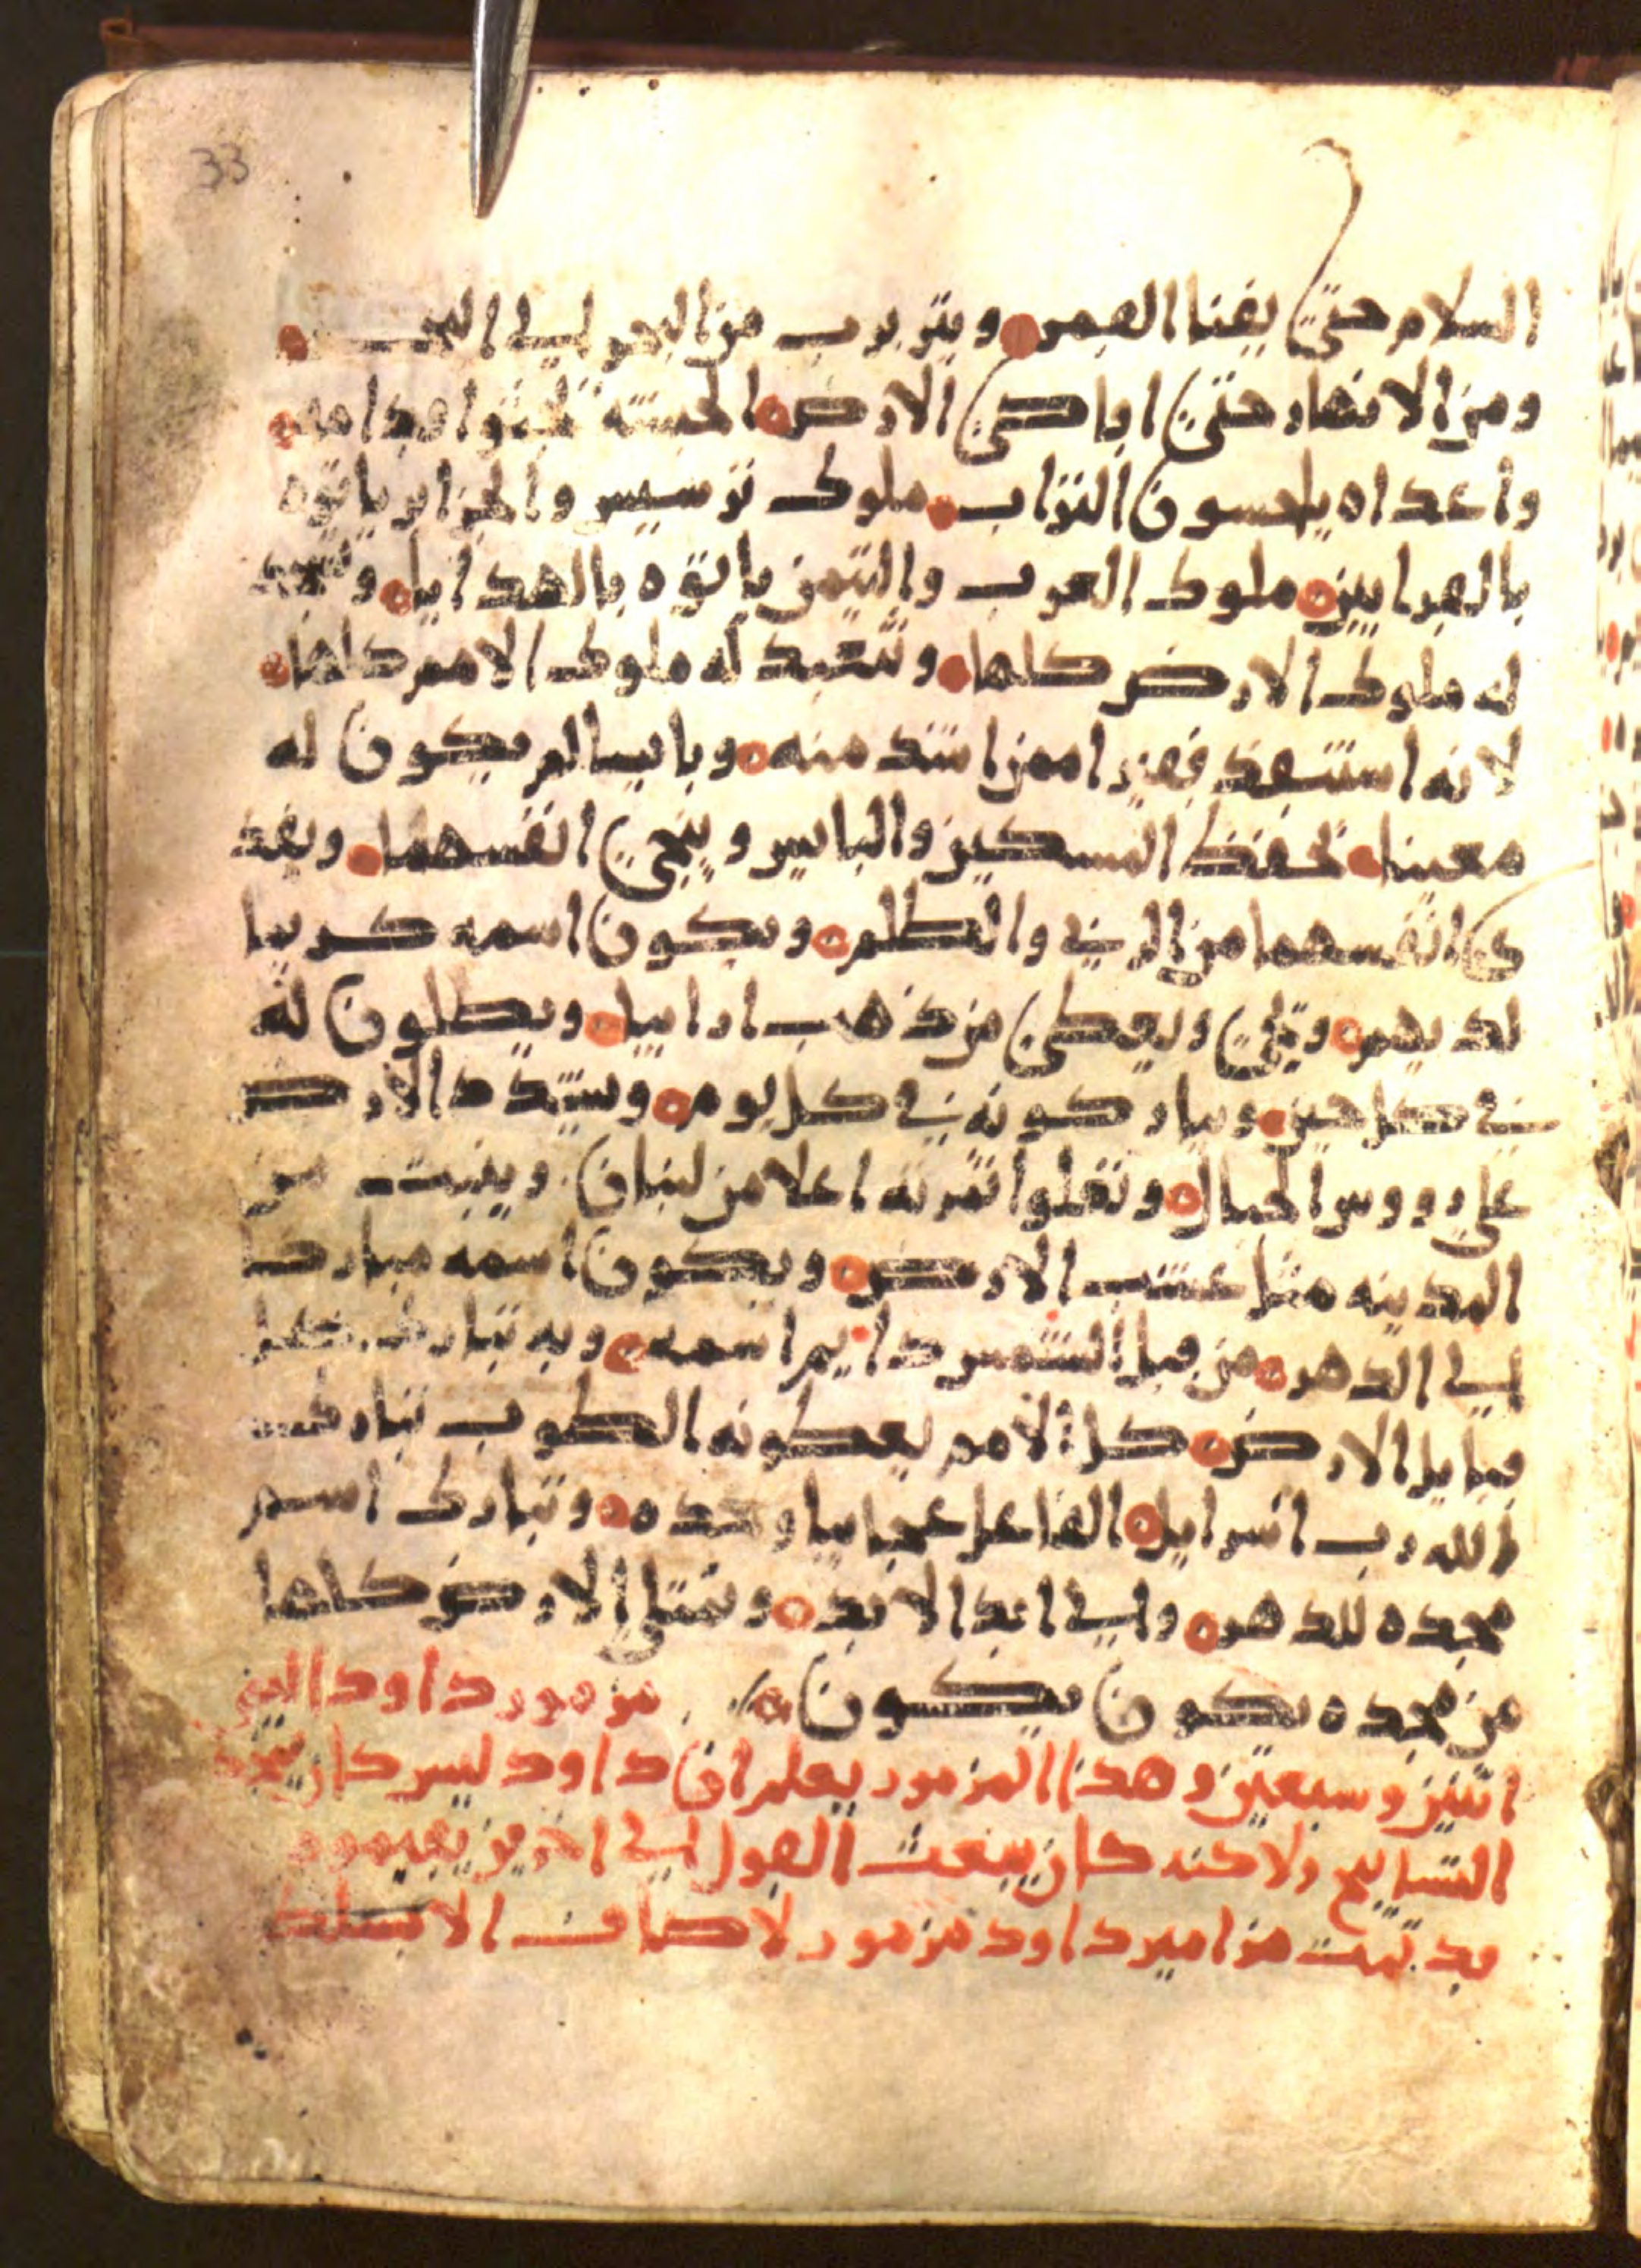 33
السلام حتى يفنا القمر ويتربرب من البحر الى البحر
ومن الانهار حتى اقاصى الارض الحبشه يجثوا قدامه
واعداه يلحسون التراب ملوك ترسيس والجزاير ياتوه
بالقرابين ملوك العرب واليمن ياتوه بالهدايا وتسجد
له ملوك الارض كلها وتتعبد له ملوك الامم كلها
لانه استنقذ فقيرا ممن اشد منه وبايسا لم يكون له
معينا يحفظ المسكين والبايس وينجى انفسهما ويفد
ى انفسهما من الربى والظلم ويكون اسمه كريما
لديهم ويحيى ويعطى من ذهب ارابيا ويصلون له
فى كل حين ويباركونه فى كل يوم ويشتدد الارض
على رووس الجبال وتعلوا ثمرته اعلا من لبنان وينبت من
المدينه مثل عشب الارض ويكون اسمه مباركا
الى الدهر من قبل الشمس دايم اسمه وبه تبارك كل
قبايل الارض كل الامم يعطونه الطوب تبارك
الله رب اسرايل الفاعل عجايبا وحده وتبارك اسم
مجده للدهر والى ابد الابد وتمتلى الارض كلها
من مجده يكون يكون مزمور داود النبى
اثنين وسبعين وهذا المزمور يعلم ان داود ليس كان
التسابيح ولاكنه كان يبعث القول الى اخرين
قد تمت مزامير داود مزمور لاصاف الا